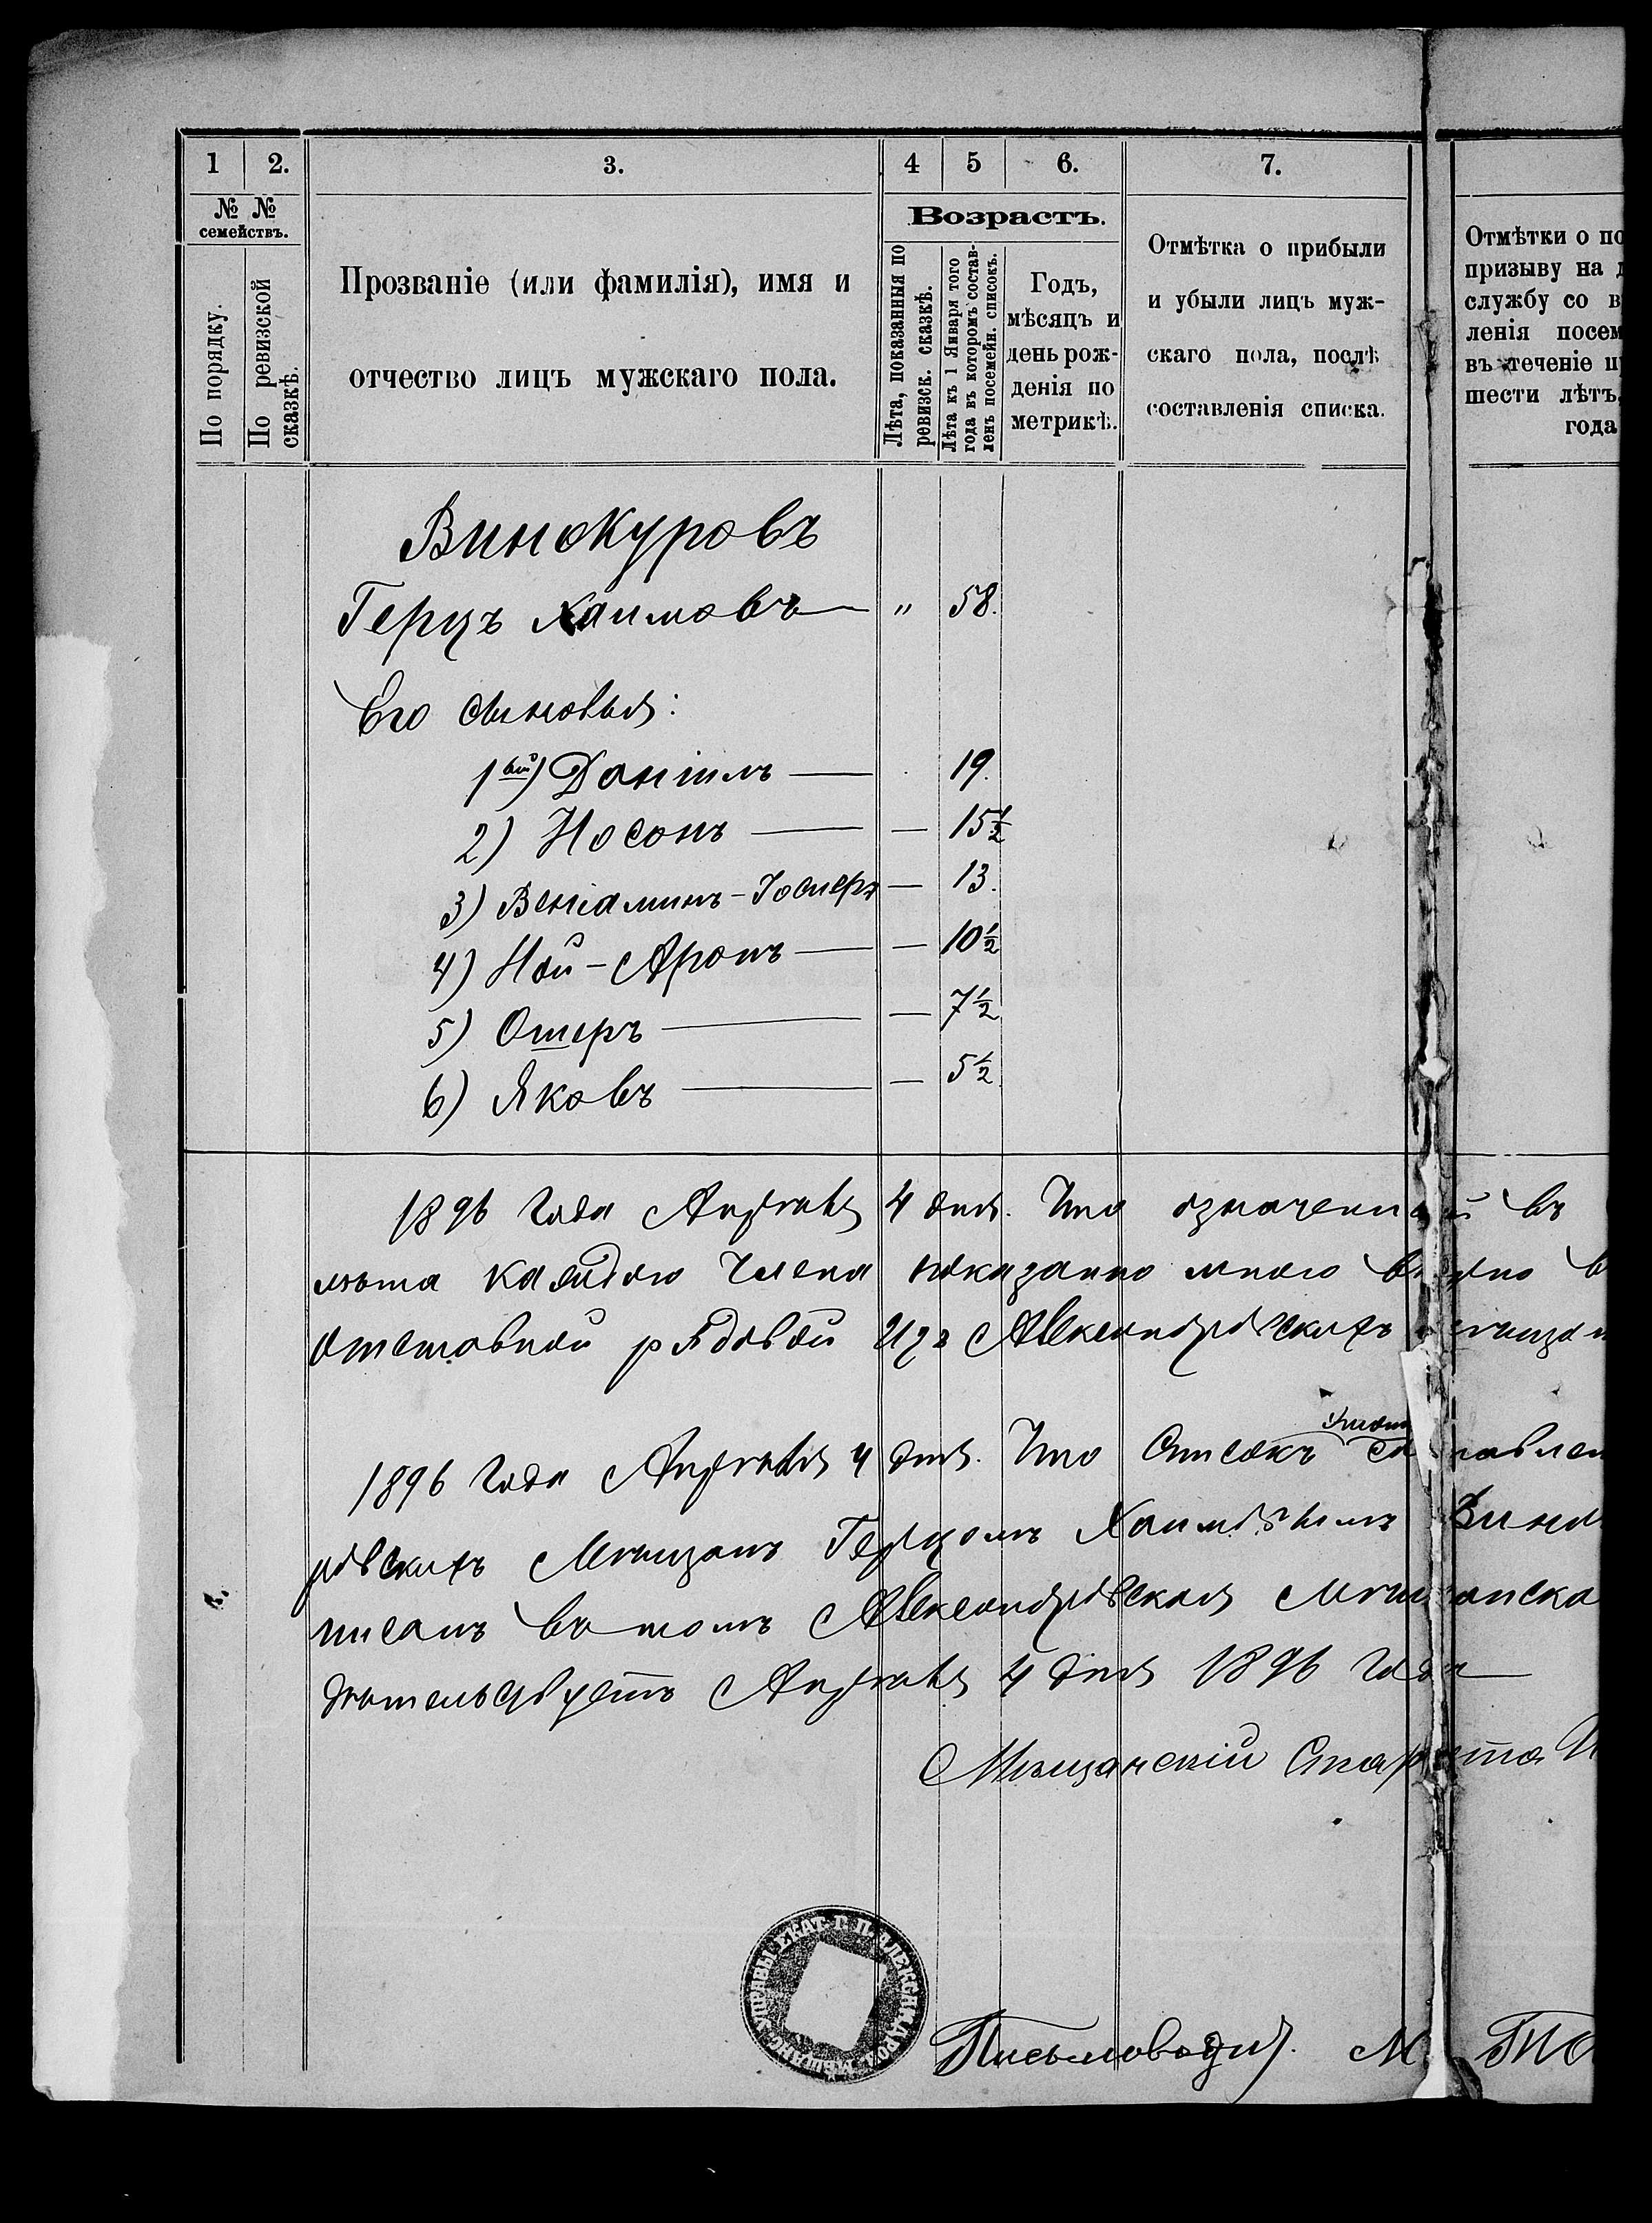 1 2. 3. 4 5 6. 7.
№ № семействъ.
По порядку.
По ревизской сказкѣ.
Прозваніе (или фамилія), имя и
отчество лицъ мужскаго пола.
Возрастъ.
Лѣта, показанныя по ревизск. сказкѣ.
Лѣта къ 1 Января того года въ которомъ составленъ посемейн. списокъ.
Годъ,
мѣсяцъ и
день рож-
денія по
метрикѣ.
Отмѣтка о прибыли
и убыли лицъ муж-
скаго пола, послѣ
составленія списка.
Отмѣтки о по
призыву на д
службу со в
ленія посем
въ теченіе п
шести лѣтъ,
года
Винокуровъ
Герцъ Хаимовъ — " 58.
Его сыновья:
1ый) Даніилъ — 19.
2) Носонъ — — 15½
3) Веніаминъ-Іосифъ — 13.
4) Ной-Аронъ — — 10½
5) Ошеръ — — 7½
6) Яковъ — — 5½
1896 года Апреля 4 дня. Что означенный въ
лѣта каждого Члена показанно мною
отставной рядовой изъ Александровскихъ
1896 года Апреля 4 дня. Что Списокъ
ровскихъ Мѣщанъ Герцомъ Хаимовымъ
писанъ въ томъ Александровская
дѣтельствуетъ Апреля 4 дня 1896 года
Мѣщанскій Староста
УПРАВЫ ЕКАТ. Г. П. АЛЕКСАНДРОВ. МѢЩАНС.
Письмовод. М